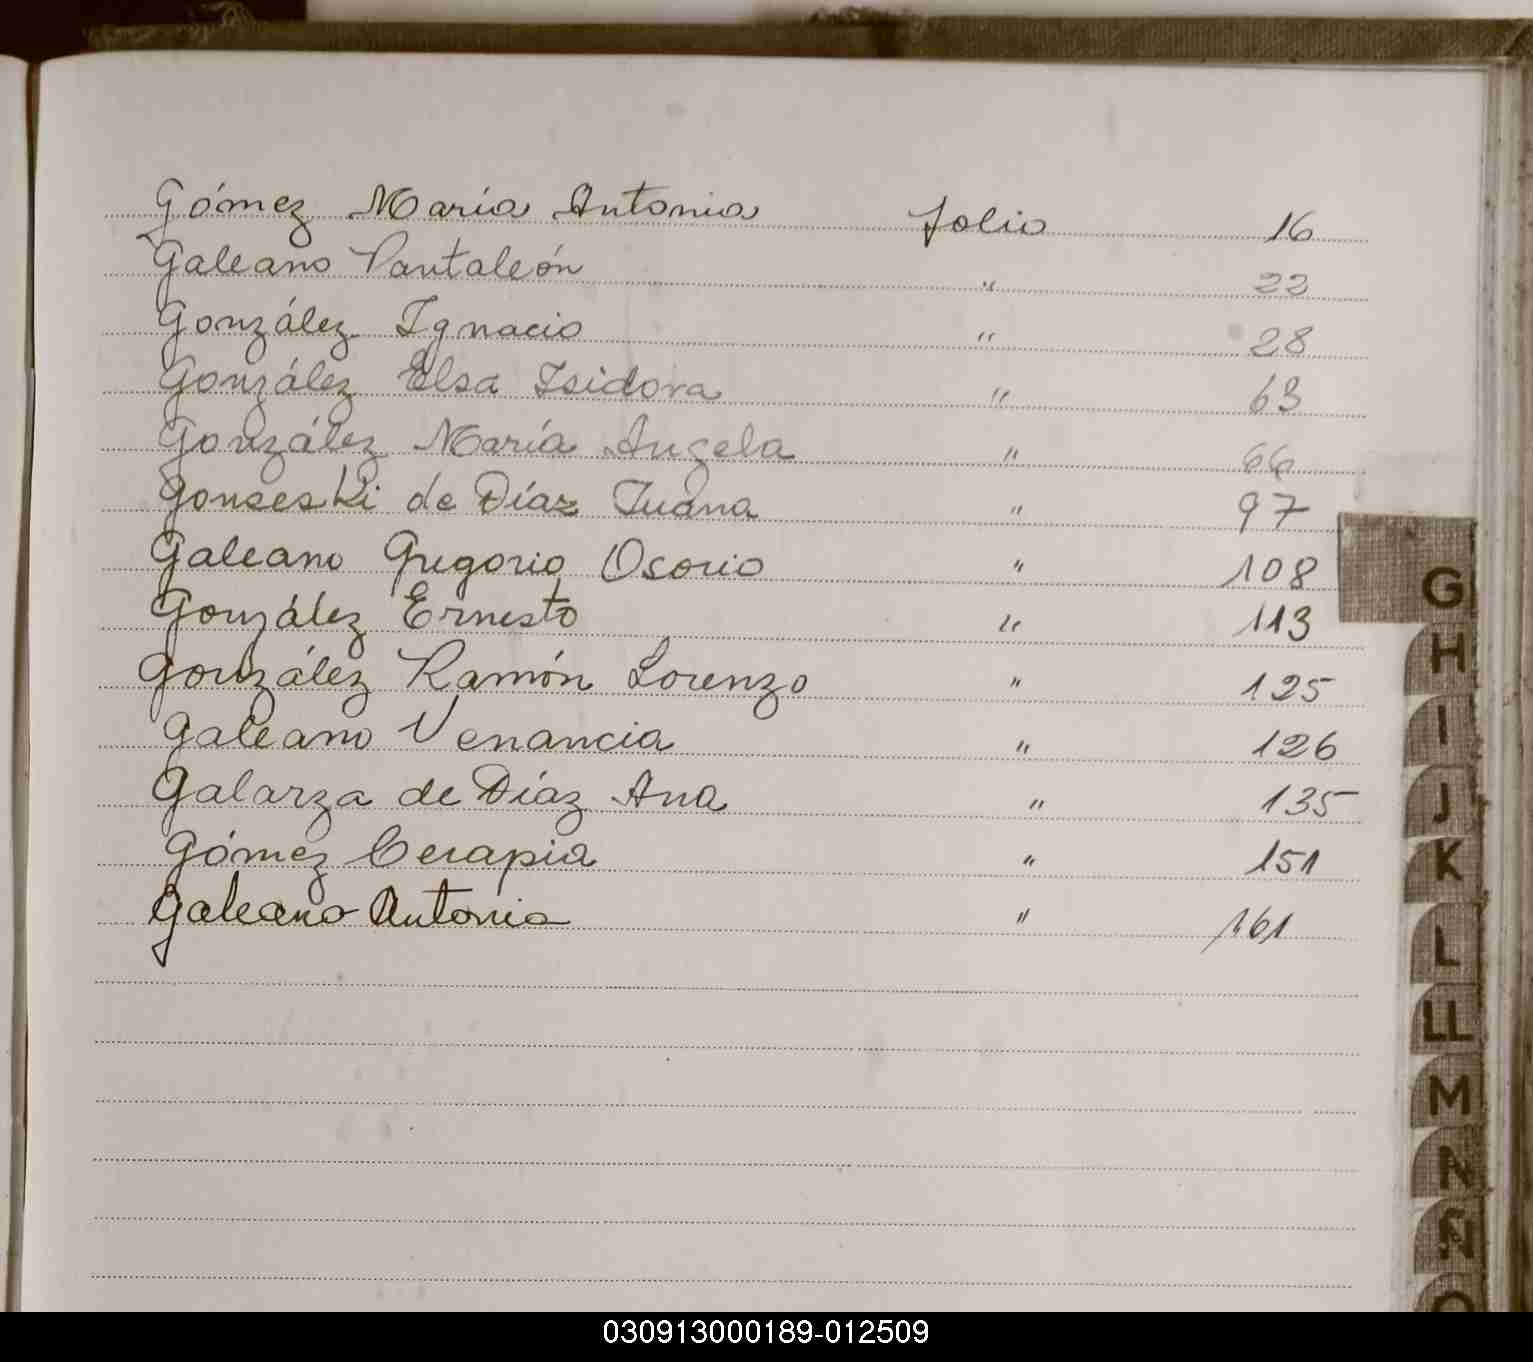 Gómez María Antonia folio 16
Galeano Pantaleón " 22
González Ignacio " 28
González Elsa Isidora " 63
González María Angela " 66
Gonseski de Díaz Juana " 97
Galeano Gregorio Osorio " 108
González Ernesto " 113
González Ramón Lorenzo " 125
Galeano Venancia " 126
Galarza de Díaz Ana " 135
Gómez Cerapia " 151
Galeano Antonia " 161
G
H
I
J
K
L
LL
M
N
Ñ
O
030913000189-012509